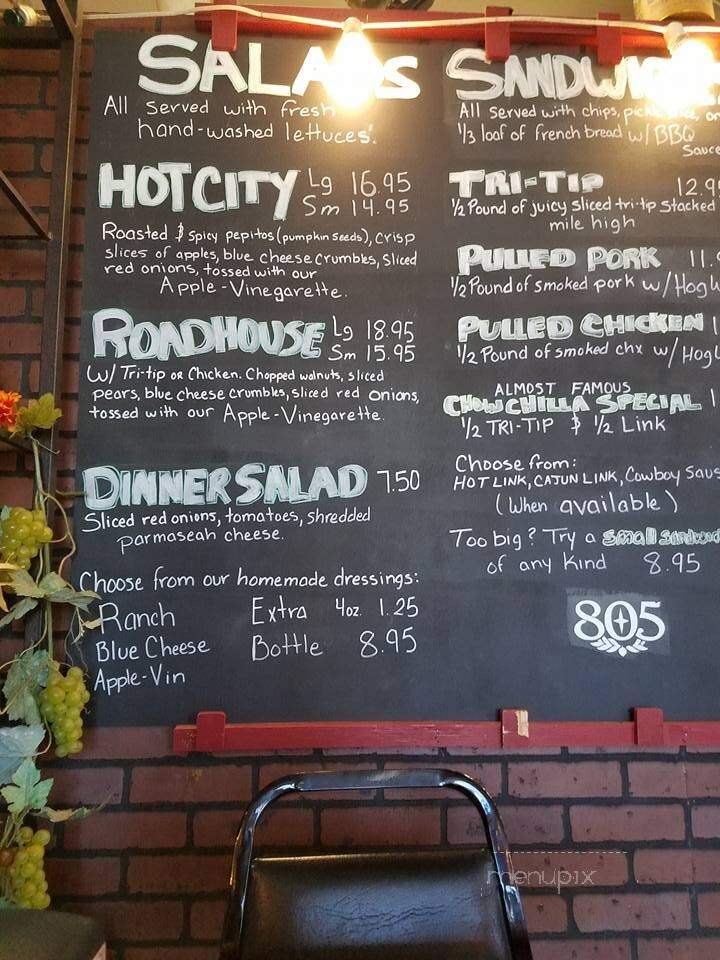 SALADS
All served with fresh
hand-washed lettuces.
HOT CITY Lg 16.95
Sm 14.95
Roasted & spicy pepitos (pumpkin seeds), crisp
slices of apples, blue cheese crumbles, sliced
red onions, tossed with our
Apple-Vinegarette.
ROADHOUSE Lg 18.95
Sm 15.95
W/ Tri-tip or Chicken. Chopped walnuts, sliced
pears, blue cheese crumbles, sliced red onions,
tossed with our Apple-Vinegarette.
DINNER SALAD 7.50
Sliced red onions, tomatoes, shredded
parmaseah cheese.
Choose from our homemade dressings:
Ranch Extra 4oz. 1.25
Blue Cheese Bottle 8.95
Apple-Vin
All served with chips,
1/3 loaf of french bread w/ BBQ
Sauce
TRI-TIP 12.9
1/2 Pound of juicy sliced tri-tip stacked
mile high
PULLED PORK 11.
1/2 Pound of smoked pork w/
PULLED CHICKEN 1
1/2 Pound of smoked chx w/
ALMOST FAMOUS
CHOWCHILLA SPECIAL 1
1/2 TRI-TIP & 1/2 Link
Choose from:
HOT LINK, CAJUN LINK, Cowboy Saus
(When available)
Too big? Try a small
of any kind 8.95
805
menupix